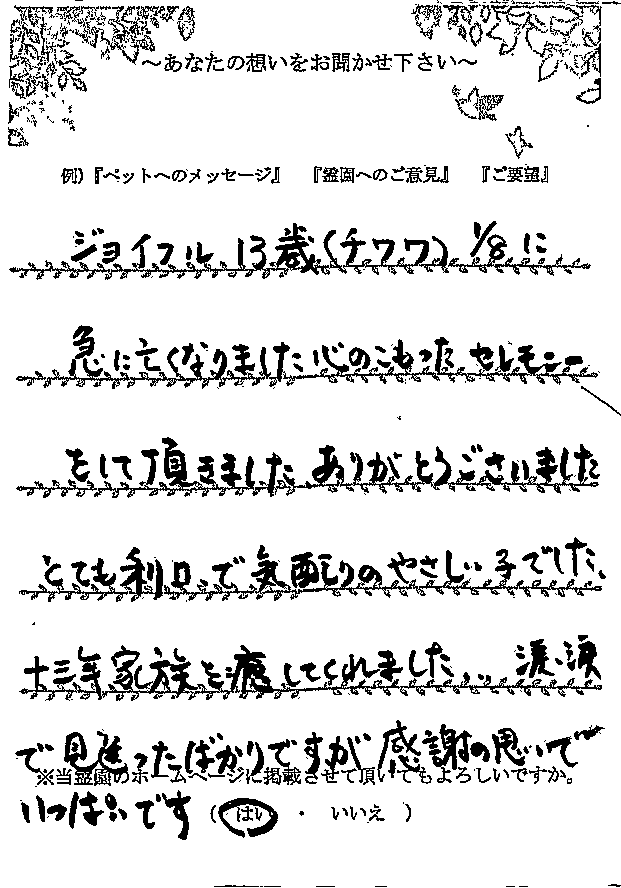 ～あなたの想いをお聞かせ下さい～
例）『ペットへのメッセージ』　『霊園へのご意見』　『ご要望』
ジョイフル 13歳（チワワ） 1/8 に
急に亡くなりました 心のこもった セレモニー
をして頂きました ありがとうございました
とても利口で気配りのやさしい子でした、
十三年家族を癒してくれました... 涙、涙
で見送ったばかりですが 感謝の思いで
※当霊園のホームページに掲載させて頂いてもよろしいですか。
いっぱいです （ はい ・ いいえ ）